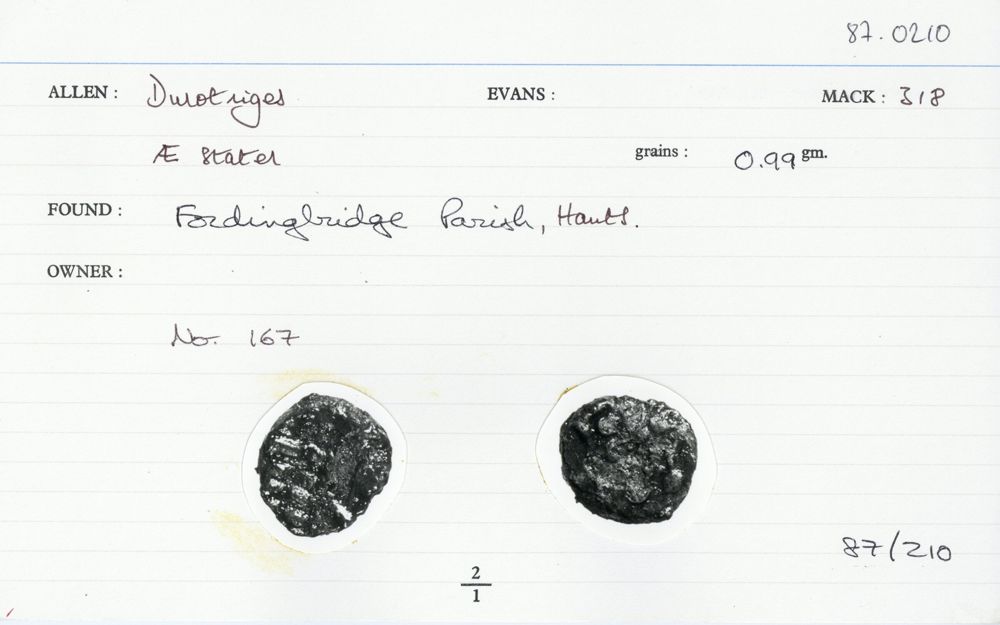 87.0210
ALLEN : Durotriges EVANS : MACK : 318
Æ stater grains : 0.99 gm.
FOUND : Fordingbridge Parish, Hants.
OWNER :
No. 167
87/210
2
1